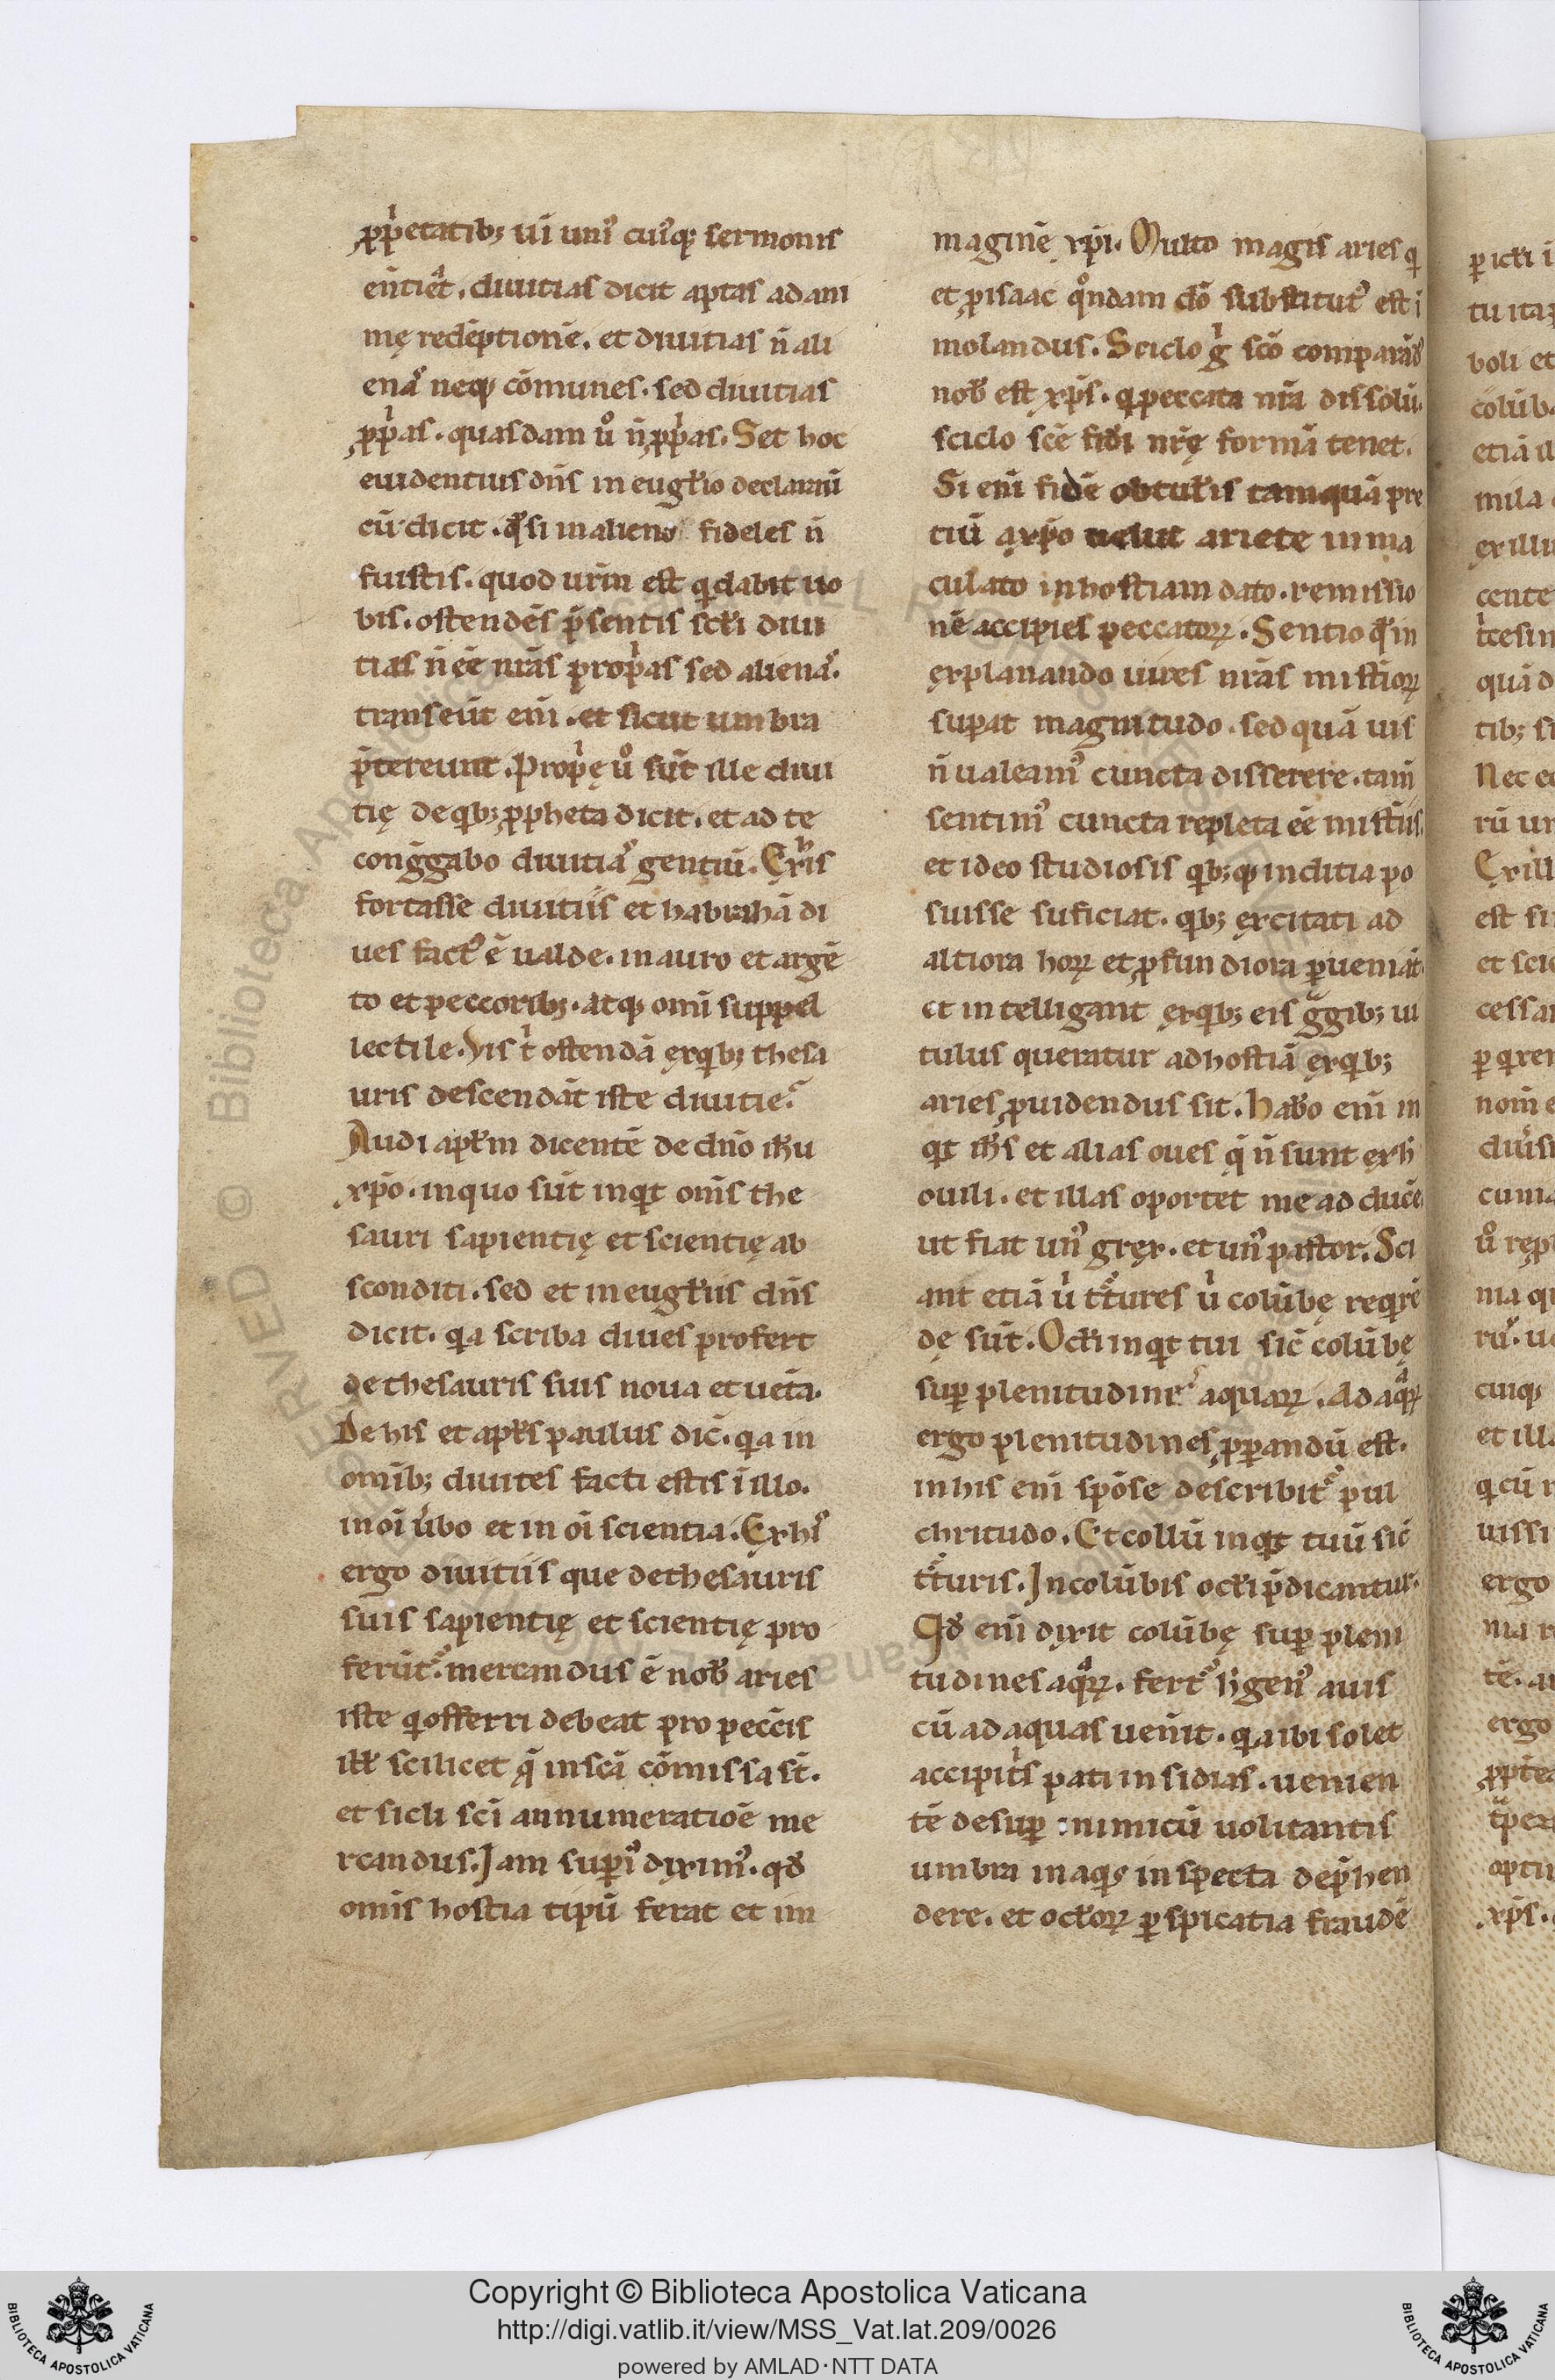 ꝓpͥetatibꝫ ui uniꝰ cuiꝰqꝫ sermonis
diuitias dicit aptas ad ani
mę redēptionē. et diuitias n̄ ali
enaˢ neqꝫ cōmunes. sed diuitias
ꝓpͥas. quasdam uͦ n̄ ꝓpͥas. Set hoc
euidentius dn̄s in eugłio declarauī
cū dicit. qđ si in alieno fideles n̄
fuistis. quod ur̄m est qͥ dabit uo
bis. ostendēs p̄sentis scłi diui
tias n̄ ee̅ nr̄as propͥas sed alienaˢ.
transeūt eni̅. et sicut umbra
p̄tereunt. Propͥę uͦ sūt ille diui
tię de qͥbꝫ ꝓpheta dicit. et ad te
congg̅abo diuitiaˢ gentiū. Ex hͥis
fortasse diuitiis et habrahā di
ues factꝰ ē ualde. in auro et argē
to et peccoribꝫ. atqꝫ omi̅ suppel
lectile. Vis tͥ ostendā ęx qͥbꝫ thesa
uris descendāt iste diuitie.
Audi apłm dicentē de dn̄o ih̄u
xp̄o. in quo sūt inqͥt om̄s the
sauri sapientię et scientię ab
sconditi. sed et in eugłiis dn̄s
dicit. qͥa scriba diues profert
de thesauris suis noua et uet̄a.
De his et apłs paulus dic̄. qͥa in
omībꝫ diuites facti estis ī illo.
in oī ūbo et in oī scientia. Ex hiˢ
ergo diuitiis que de thesauris
suis sapientię et scientię pro
ferūtꝰ. mercandus ē nob̄ aries
iste qͥ offerri debeat pro pecc̄is
ill̄ scilicet q̄ in sc̄a cōmissa st̄.
et sicli sc̄i annumeratioē me
rcandus. Jam supiˢ diximꝰ. qđ
om̄is hostia tipū ferat et im
maginē xp̄i. Multo magis aries qͥ
et ꝓ isaac qͦndam dō substitutꝰ est ī
molandus. Sciclo gͥ sc̄o comparādꝰ
nob̄ est xp̄s. qͥ peccata nr̄a dissolu
sciclo sc̄e fidi nr̄ę formā tenet.
Si eni̅ fidē obtułis tamquā pre
tiū a xp̄o uelut ariete inma
culato in hostiam dato. remissio
nē accipies peccatoꝝ. Sentio qđ in
explanando uires nr̄as mistioꝝ
supat magnitudo. sed quā uis
n̄ ualeamꝰ cuncta disserere. tam̄
sentimꝰ cuncta repleta ee̅ mist̄iis
et ideo studiosis qͥbꝫqꝫ inditia po
suisse suficiat. qͥbꝫ exercitati ad
altiora hoꝝ et ꝓfundiora ꝑueniāt.
et intelligant ęx qͥbꝫ eis gͣgibꝫ ui
tulus queratur ad hostiā ęx qͥbꝫ
aries ꝓuidendus sit. Hab̄o eni̅ in
qͥt ih̄s et alias oues q̄ n̄ sunt ęx h̄
ouili. et illas oportet me adducē
ut fiat unꝰ gręx. et unꝰ pastor. Sci
ant etiā uͥ tˀtures uͥ colūbę reqͥrē
dę sūt. Ocłi inqͥt tui sic̄ colūbę
suꝑ plenitudineˢ aquaꝝ. Ad aqͣꝝ
ergo plenitudines ꝓpandū est.
in his eni̅ spōse describitˀ pul
chritudo. Et collū inqͥt tuū sic̄
tˀturis. In colūbis ocłi p̄dicantur.
Qđ eni̅ dixit colūbę suꝑ pleni
tudines aqͣꝝ. fertˀ h̄ genꝰ auis
cū ad aquas uen̄it. qͥa ibi solet
accipitͥs pati insidias. uenien
tē desuꝑ inimicū uolitantis
umbra in aqͥs inspecta dep̄hen
dere. et ocłoꝝ ꝑspicatia fraudē
Copyright © Biblioteca Apostolica Vaticana
http://digi.vatlib.it/view/MSS_Vat.lat.209/0026
powered by AMLAD · NTT DATA
BIBLIOTECA APOSTOLICA VATICANA
BIBLIOTECA APOSTOLICA VATICANA